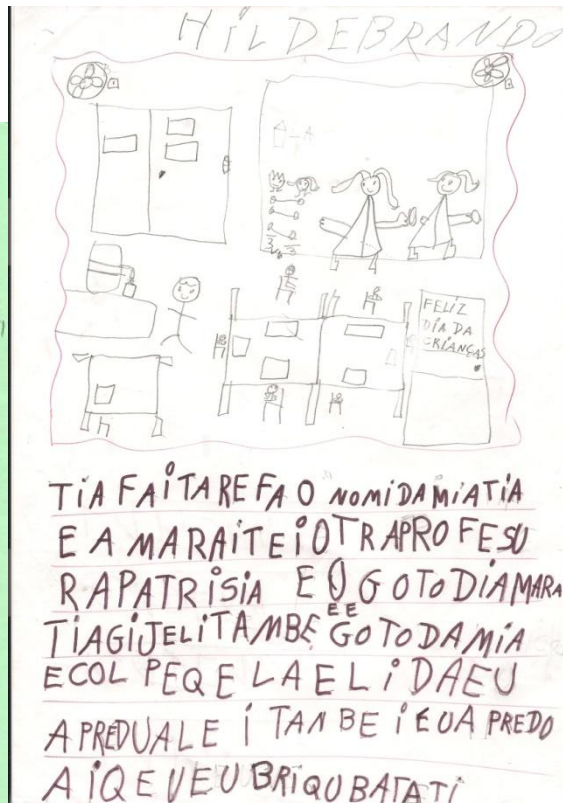 HILDEBRANDO
A-A
FELIZ
DIA DA
CRIANÇAS
TIA FAITAREFA O NOMIDAMIATIA
E A MARAITEIOTRAPROFESU
RAPATRISIA E O GOTODIAMARA
E E
TIAGIJELITAMBE GOTODAMIA
ECOL PEQELAELIDAEU
APREDUALE I TANBEIEUAPREDO
AIQEUEUBRIQUBATATI